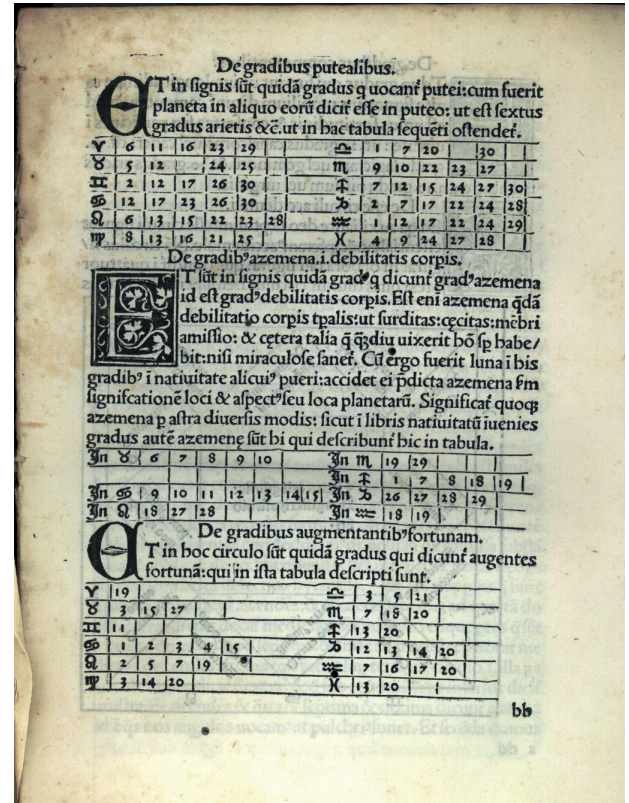 De gradibus putealibus.
ET in signis sũt quidã gradus q uocant᷑ putei:cum fuerit
planeta in aliquo eorũ dicit᷑ esse in puteo: ut est sextus
gradus arietis &c̃.ut in hac tabula sequẽti ostendet᷑.
♈ 6 11 16 23 29 ♎ 1 7 20 30
♉ 5 12 24 25 ♏ 9 10 22 23 27
♊ 2 12 17 26 30 ♐ 7 12 15 24 27 30
♋ 12 17 23 26 30 ♑ 2 7 17 22 24 28
♌ 6 13 15 22 23 28 ♒ 1 12 17 22 24 29
♍ 8 13 16 21 25 ♓ 4 9 24 27 28
De gradibꝰ azemena.i.debilitatis corpis.
ET sũt in signis quidã gradꝰ q dicunt᷑ gradꝰ azemena
id est gradꝰ debilitatis corpis. Est eni azemena q̃dã
debilitatio corpis tpalis:ut surditas:cęcitas:mẽbri
amissio: & cętera talia q̃ q̃ȝdiu uixerit hõ sp habe/
bit:nisi miraculose sanet᷑. Cũ ergo fuerit luna ĩ his
gradibꝰ ĩ natiuitate alicuiꝰ pueri:accidet ei p̃dicta azemena ẜm
significationẽ loci & aspectꝰ seu loca planetarũ. Significat᷑ quoqȝ
azemena p astra diuersis modis: sicut ĩ libris natiuitatũ iuenies
gradus autẽ azemenę sũt hi qui describunt᷑ hic in tabula.
In ♉ 6 7 8 9 10 In ♏ 19 29
In ♐ 1 7 8 18 19
In ♋ 9 10 11 12 13 14 15 In ♑ 26 27 28 29
In ♌ 18 27 28 In ♒ 18 19
De gradibus augmentantibꝰ fortunam.
ET in hoc circulo sũt quidã gradus qui dicunt᷑ augentes
fortunã:qui in ista tabula descripti sunt.
♈ 19 ♎ 3 5 21
♉ 3 15 27 ♏ 7 18 20
♊ 11 ♐ 13 20
♋ 1 2 3 4 15 ♑ 12 13 14 20
♌ 2 5 7 19 ♒ 7 16 17 20
♍ 3 14 20 ♓ 13 20
bb